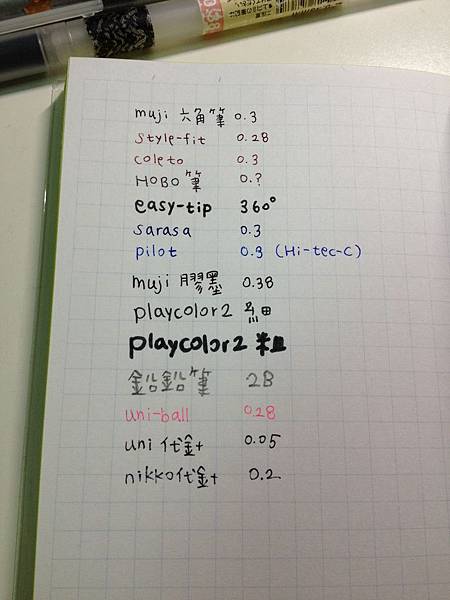 0.38
muji 六角筆 0.3
style-fit 0.28
coleto 0.3
HOBO筆 0.?
easy-tip 360°
sarasa 0.3
pilot 0.3 (Hi-tec-C)
muji 膠墨 0.38
playcolor2 細
playcolor2 粗
鉛鉛筆 2B
uni-ball 0.28
uni 代針 0.05
nikko代針 0.2